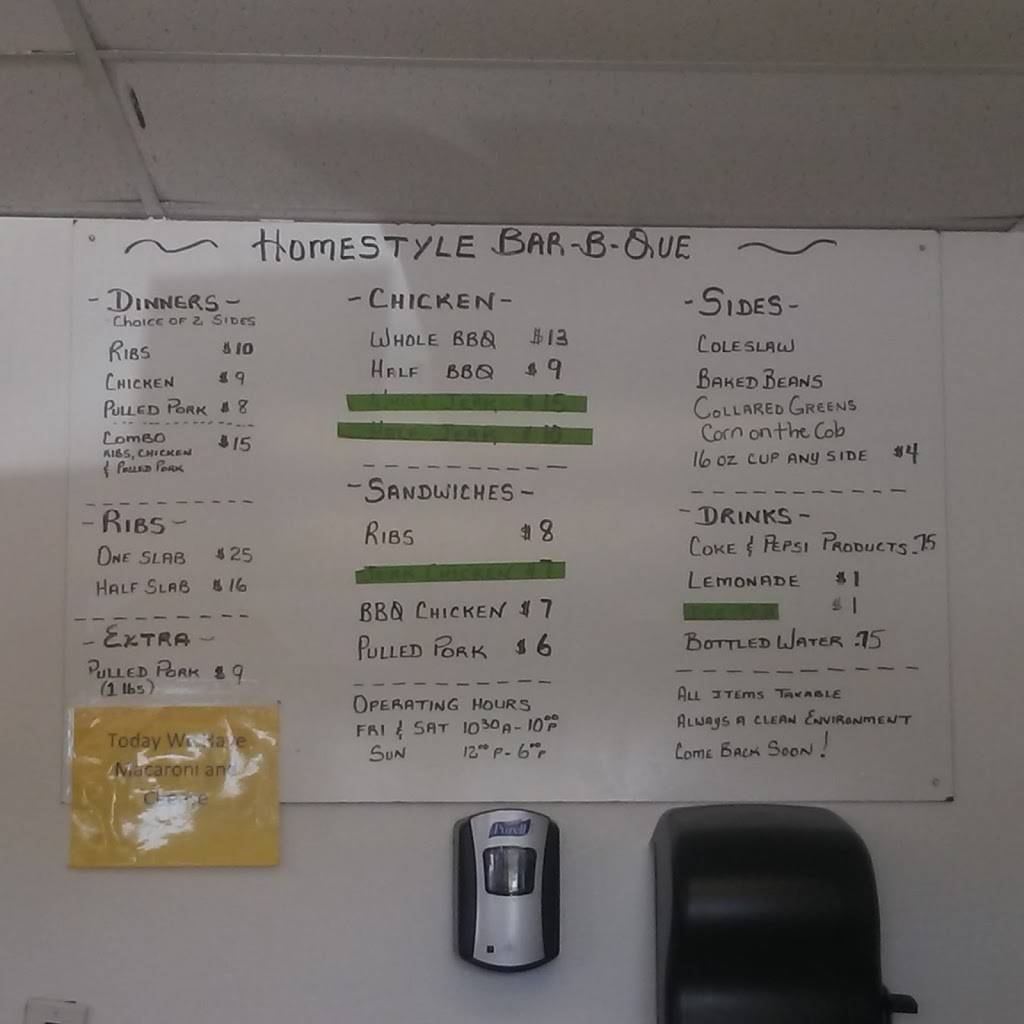 HOMESTYLE BAR-B-QUE
- DINNERS -
CHOICE OF 2 SIDES
RIBS $10
CHICKEN $9
PULLED PORK $8
COMBO $15
RIBS, CHICKEN
& PULLED PORK
- RIBS -
ONE SLAB $25
HALF SLAB $16
- EXTRA -
PULLED PORK $9
(1 lbs)
Today We Have
Macaroni and
Cheese
- CHICKEN -
WHOLE BBQ $13
HALF BBQ $9
WHOLE JERK $15
HALF JERK $10
- SANDWICHES -
RIBS $8
JERK CHICKEN $7
BBQ CHICKEN $7
PULLED PORK $6
OPERATING HOURS
FRI & SAT 10 30 A - 10 00 P
SUN 12 00 P - 6 00 P
- SIDES -
COLESLAW
BAKED BEANS
COLLARED GREENS
Corn on the Cob
16 OZ CUP ANY SIDE $4
- DRINKS -
COKE & PEPSI PRODUCTS .75
LEMONADE $1
$1
BOTTLED WATER .75
ALL ITEMS TAXABLE
ALWAYS A CLEAN ENVIRONMENT
COME BACK SOON!
Purell